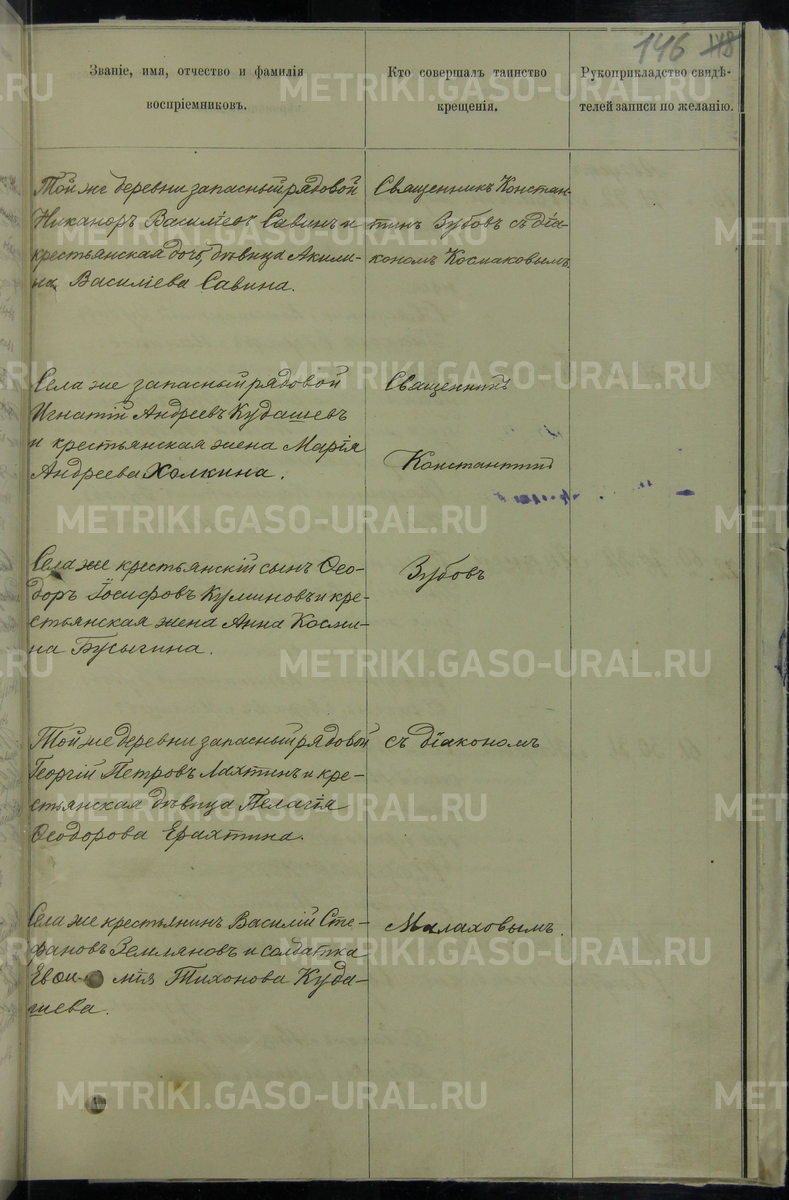 146 118
Званіе, имя, отчество и фамилія
воспріемниковъ.
Кто совершалъ таинство
крещенія.
Рукоприкладство свидѣ-
телей записи по желанію.
Той же деревни запасный рядовой
Никаноръ Василіевъ Савинъ и
крестьянская дочь, дѣвица Акили-
на Василіева Савина.
Священникъ Констан-
тинъ Зубовъ съ діа-
кономъ Космаковымъ.
Села же запасный рядовой
Игнатій Андреевъ Кудашевъ
и крестьянская жена Марія
Андреева Холкина.
Священникъ
Константинъ
Села же крестьянскій сынъ Ѳео-
доръ Іосифовъ Куминовъ и кре-
стьянская жена Анна Косми-
на Бусыгина.
Зубовъ
Той же деревни запасный рядовой
Георгій Петровъ Лахтинъ и кре-
стьянская дѣвица Пелагія
Ѳеодорова Ерахтина.
съ діакономъ
Села же крестьянинъ Василій Сте-
фановъ Земляновъ и солдатка
Евѳи- мія Тихонова Куда-
шева.
Малаховымъ.
METRIKI.GASO-URAL.RU